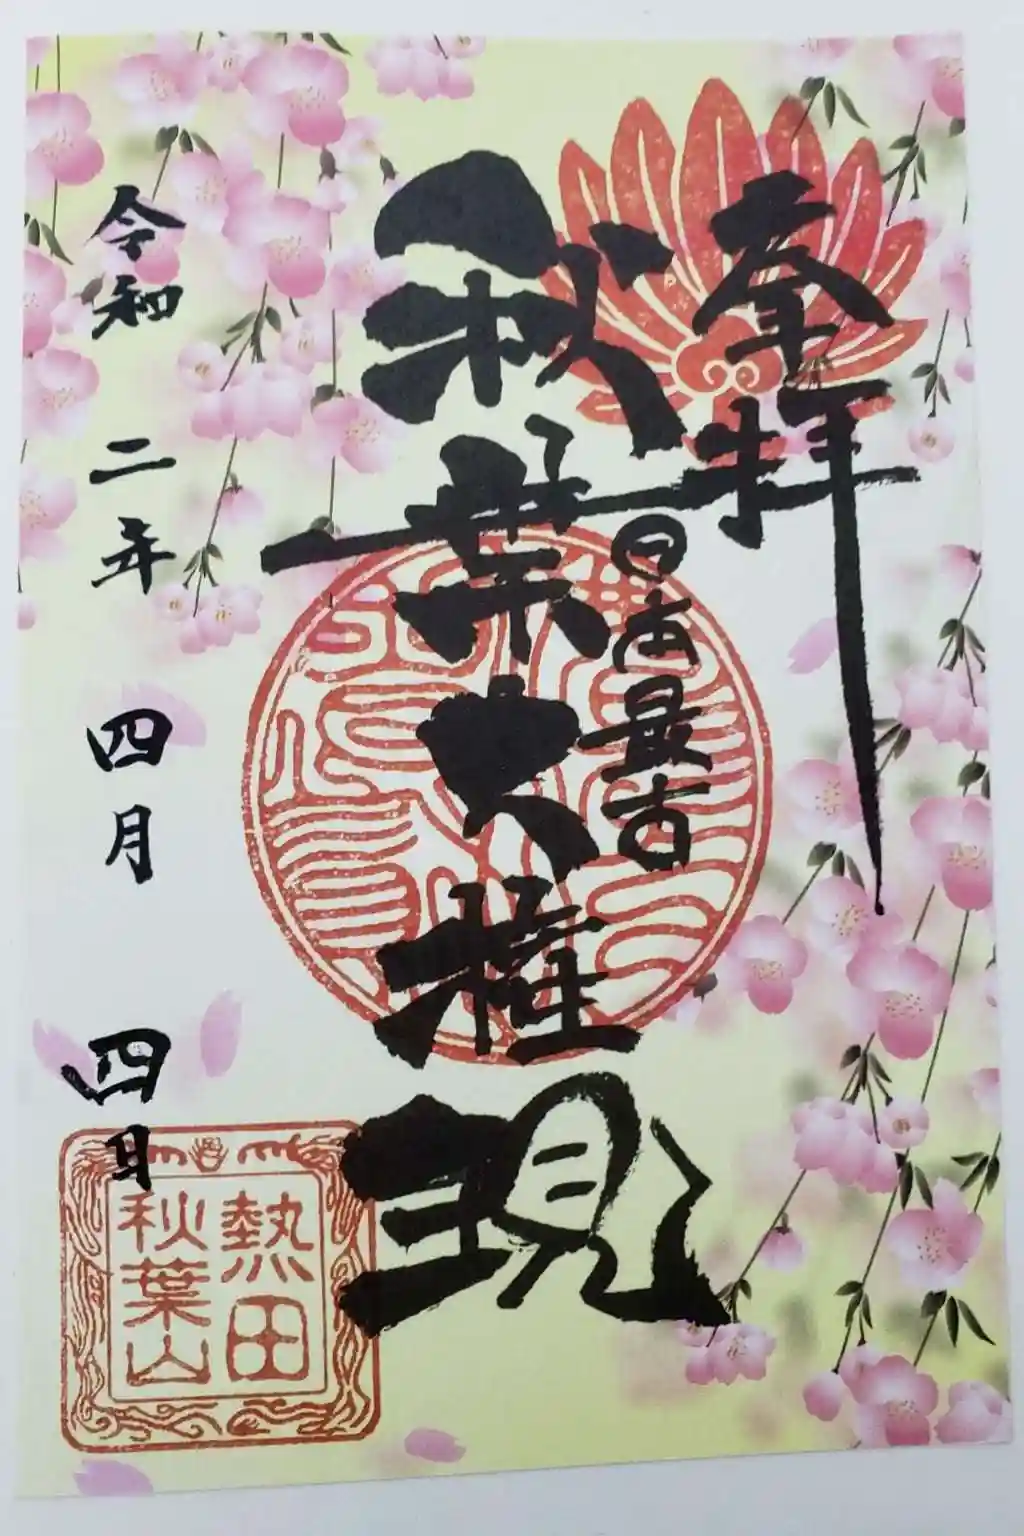 奉拝
日本最古
秋葉大権現
令和二年四月四日
熱田
秋葉山